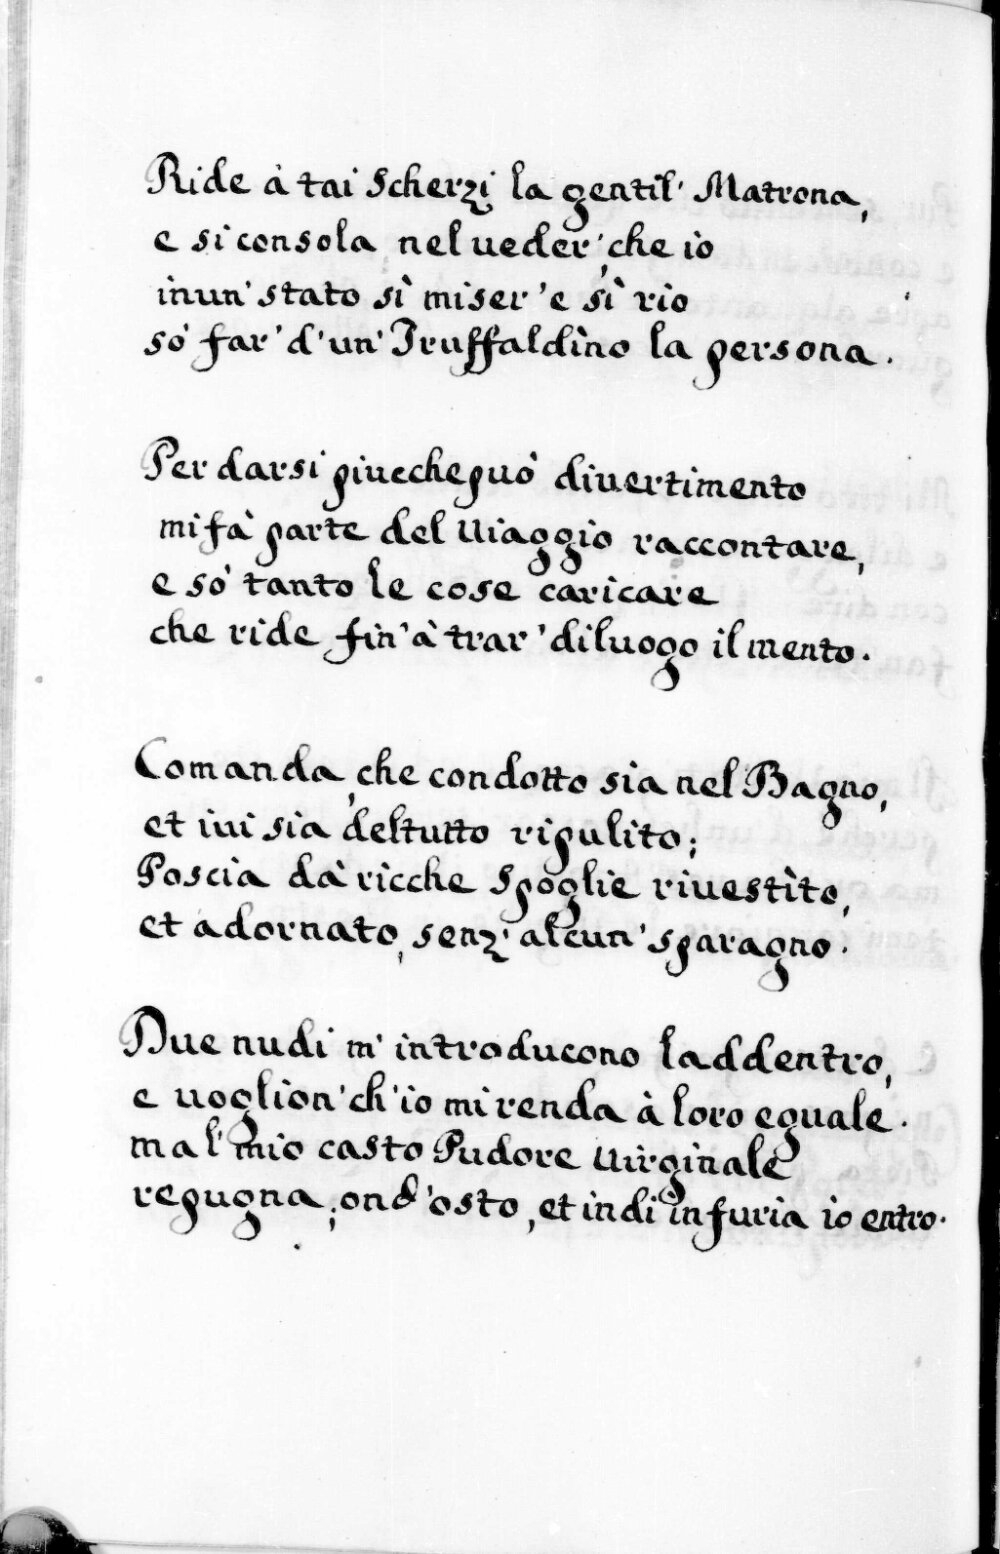 Ride à tai Scherzi la gentil' Matrona,
e si consola nel ueder', che io
in un' stato sì miser' e sì rio
sò far' d'un' Truffaldìno la persona.
Per darsi piucchepuò divertimento
mi fà parte del Uiaggio raccontare,
e sò tanto le cose caricare
che ride fin' à trar' di luogo il mento.
Comanda, che condotto sia nel Bagno,
et iui sia deltutto ripulito;
Poscia dà ricche spoglie riuestìto,
et adornato, senz' alcun' sparagno.
Due nudi m' introducono laddentro,
e uoglion' ch' io mi renda à loro eguale.
ma l' mio casto Pudore Uirginale
repugna; ond' osto, et indi infuria io entro.